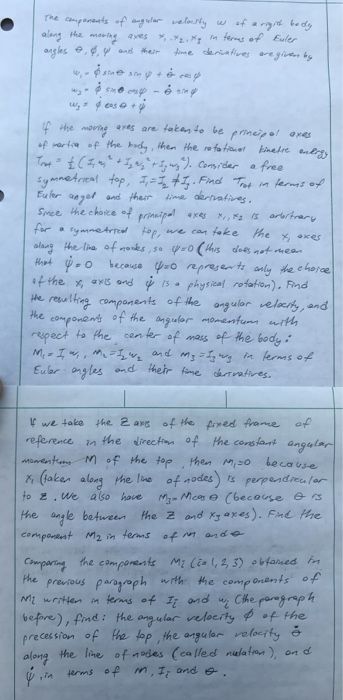 The components of angular velocity w of a rigid body
along the moving axes x₁, x₂, x₃ in terms of Euler
angles θ, φ, ψ and their time derivatives are given by
w₁ = φ̇ sin θ sin ψ + θ̇ cos ψ
w₂ = φ̇ sin θ cos ψ - θ̇ sin ψ
w₃ = φ̇ cos θ + ψ̇
If the moving axes are taken to be principal axes
of inertia of the body, then the rotational kinetic energy
Trot = ½ (I₁ w₁² + I₂ w₂² + I₃ w₃²). Consider a free
symmetrical top, I₁ = I₂ ≠ I₃. Find Trot in terms of
Euler angel and their time derivatives.
Since the choice of principal axes x₁, x₂ is arbitrary
for a symmetrical top, we can take the x₁ axes
along the line of nodes, so ψ=0 (this does not mean
that ψ̇ = 0 because ψ=0 represents only the choice
of the x₁ axis and ψ̇ is a physical rotation). Find
the resulting components of the angular velocity, and
the components of the angular momentum with
respect to the center of mass of the body:
M₁ = I₁ w₁, M₂ = I₂ w₂ and M₃ = I₃ w₃ in terms of
Euler angles and their time derivatives.
If we take the Z axis of the fixed frame of
reference in the direction of the constant angular
momentum M of the top, then M₁=0 because
x₁ (taken along the line of nodes) is perpendicular
to z. We also have M₃ = M cos θ (because θ is
the angle between the Z and x₃ axes). Find the
component M₂ in terms of M and θ
Comparing the components Mi (i=1,2,3) obtained in
the previous paragraph with the components of
Mi written in terms of Ii and wi (the paragraph
before), find: the angular velocity φ̇ of the
precession of the top, the angular velocity θ̇
along the line of nodes (called nutation), and
ψ̇, in terms of M, Ii and θ.